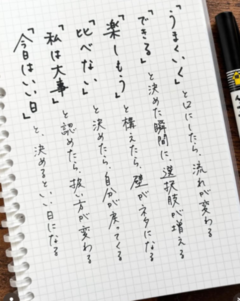 「うまくいく」と口にしたら、流れが変わる
「できる」と決めた瞬間に、選択肢が増える
「楽しもう」と構えたら、壁がネタになる
「比べない」と決めたら、自分が戻ってくる
「私は大事」と認めたら、扱い方が変わる
「今日はいい日」と、決めるといい日になる